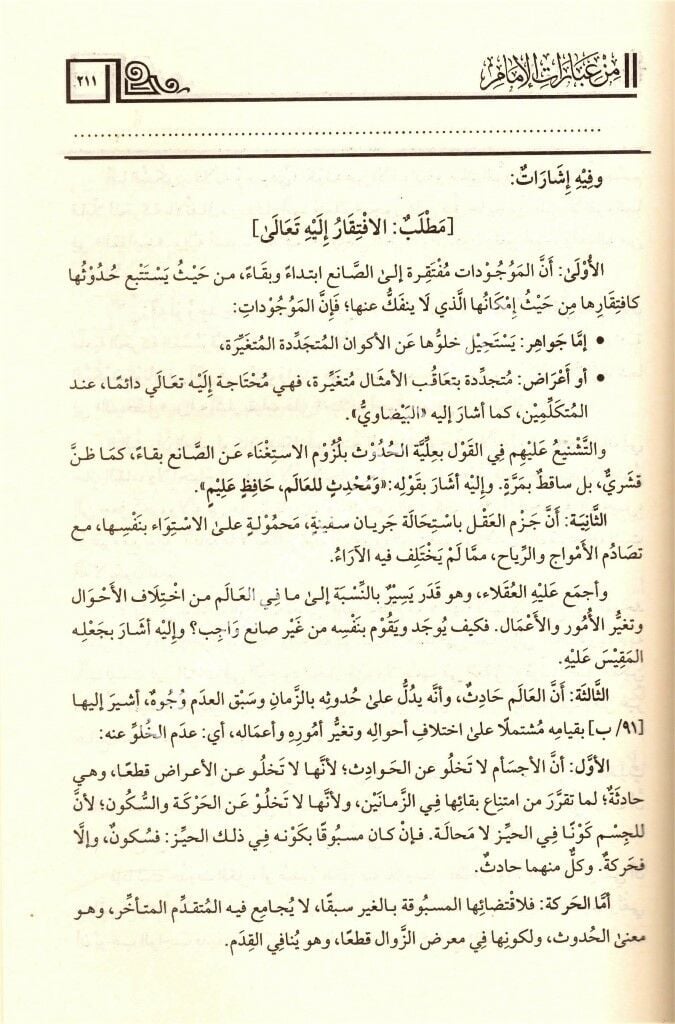 مِنْ عِبَارَاتِ الْإِمَامِ
٢١١
وفِيْهِ إِشَارَاتٌ:
[مَطْلَبٌ: الافْتِقَارُ إِلَيْهِ تَعَالَىٰ]
الأُوْلَىٰ: أَنَّ المَوْجُوْدات مُفْتَقِرة إلىٰ الصَّانع ابتداءً وبقاءً، من حَيْثُ يَسْتَتْبع حُدُوْثُها
كافتِقارِها مِن حَيْثُ إِمْكَانُها الَّذي لَا ينفَكُّ عنها؛ فإنَّ المَوْجُوْداتِ:
• إمَّا جَواهِر: يَسْتَحِيْل خلوُّها عَن الأكوان المُتجَدِّدة المُتغَيِّرَة،
• أو أَعْرَاض: مُتجدِّدة بتعَاقُب الأمثَال مُتغَيِّرة، فهي مُحْتَاجة إِلَيْه تعَالَي دائمًا، عند
المُتكَلِّمِيْن، كما أشارَ إليه «البَيْضاويُّ».
والتَّشْنيعُ عَلَيْهِم فِي القَوْل بعِلِّيَّة الحُدُوْث بلُزُوْم الاستِغْنَاء عَن الصَّانع بقاءً، كمَا ظنَّ
قشَريٌّ، بل ساقطٌ بمَرَّةٍ. وإِليْه أشَارَ بقَوْلِه: «وَمُحْدِثٍ للعَالَم، حَافِظٍ عَلِيْمٍ».
الثَّانيَة: أَنَّ جَزْم العَقْل باستِحَالَة جَريان سفينةٍ، مَحْمُوْلةٍ علىٰ الاسْتِوَاء بنَفْسِها، مع
تصَادُم الأمْواج والرِّياح، ممَّا لَمْ يَخْتَلِف فيه الآرَاءُ.
وأجمَع عَلَيْهِ العُقَلاء، وهو قَدَر يَسِيْرٌ بالنِّسْبَة إلىٰ ما في العَالَم من اخْتِلاف الأَحْوَال
وتغيُّر الأُمُور والأَعْمَال. فكيف يُوجَد ويَقُوْم بنَفْسِه من غَيْر صانع وَاجِب؟ وإِليْه أشارَ بجَعْلِه
المَقِيْسَ عَلَيْهِ.
الثَّالثَة: أَنَّ العَالَم حَادِثٌ، وأنَّه يدُلُّ علىٰ حُدوثِه بالزَّمانِ وسَبْق العدَم وُجُوهٌ، أشيرَ إليها
[٩١/ ب] بقيامِه مُشتملًا علىٰ اختلافِ أحوالِه وتغيُّر أمُورِه وأعمَاله، أي: عدَم الخُلوِّ عنه:
الأوَّل: أنَّ الأجسَأم لَا تَخلُو عن الحَوادِث؛ لأنَّها لَا تَخلُو عن الأعراض قطعًا، وهي
حادثَةٌ؛ لما تقرَّرَ من امتِناع بقائِها في الزَّمانَيْن، ولأنَّها لَا تَخلُوْ عَنِ الحَرَكَة والسُّكُون؛ لأنَّ
للجِسْم كَوْنًا في الحيِّز لَا مَحالَة. فإنْ كان مسبُوقًا بكَوْنه في ذلك الحيِّز: فسُكونٌ، وإلَّا
فحَركةٌ. وكلٌّ منهما حادثٌ.
أمَّا الحَركة: فلاقتضائِها المسبُوقة بالغير سبقًا، لَا يُجامِع فيه المُتقدِّم المتأخِّر، وهو
معنىٰ الحُدوث، ولكَونِها في معرض الزَّوال قطعًا، وهو يُنافِي القِدَم.